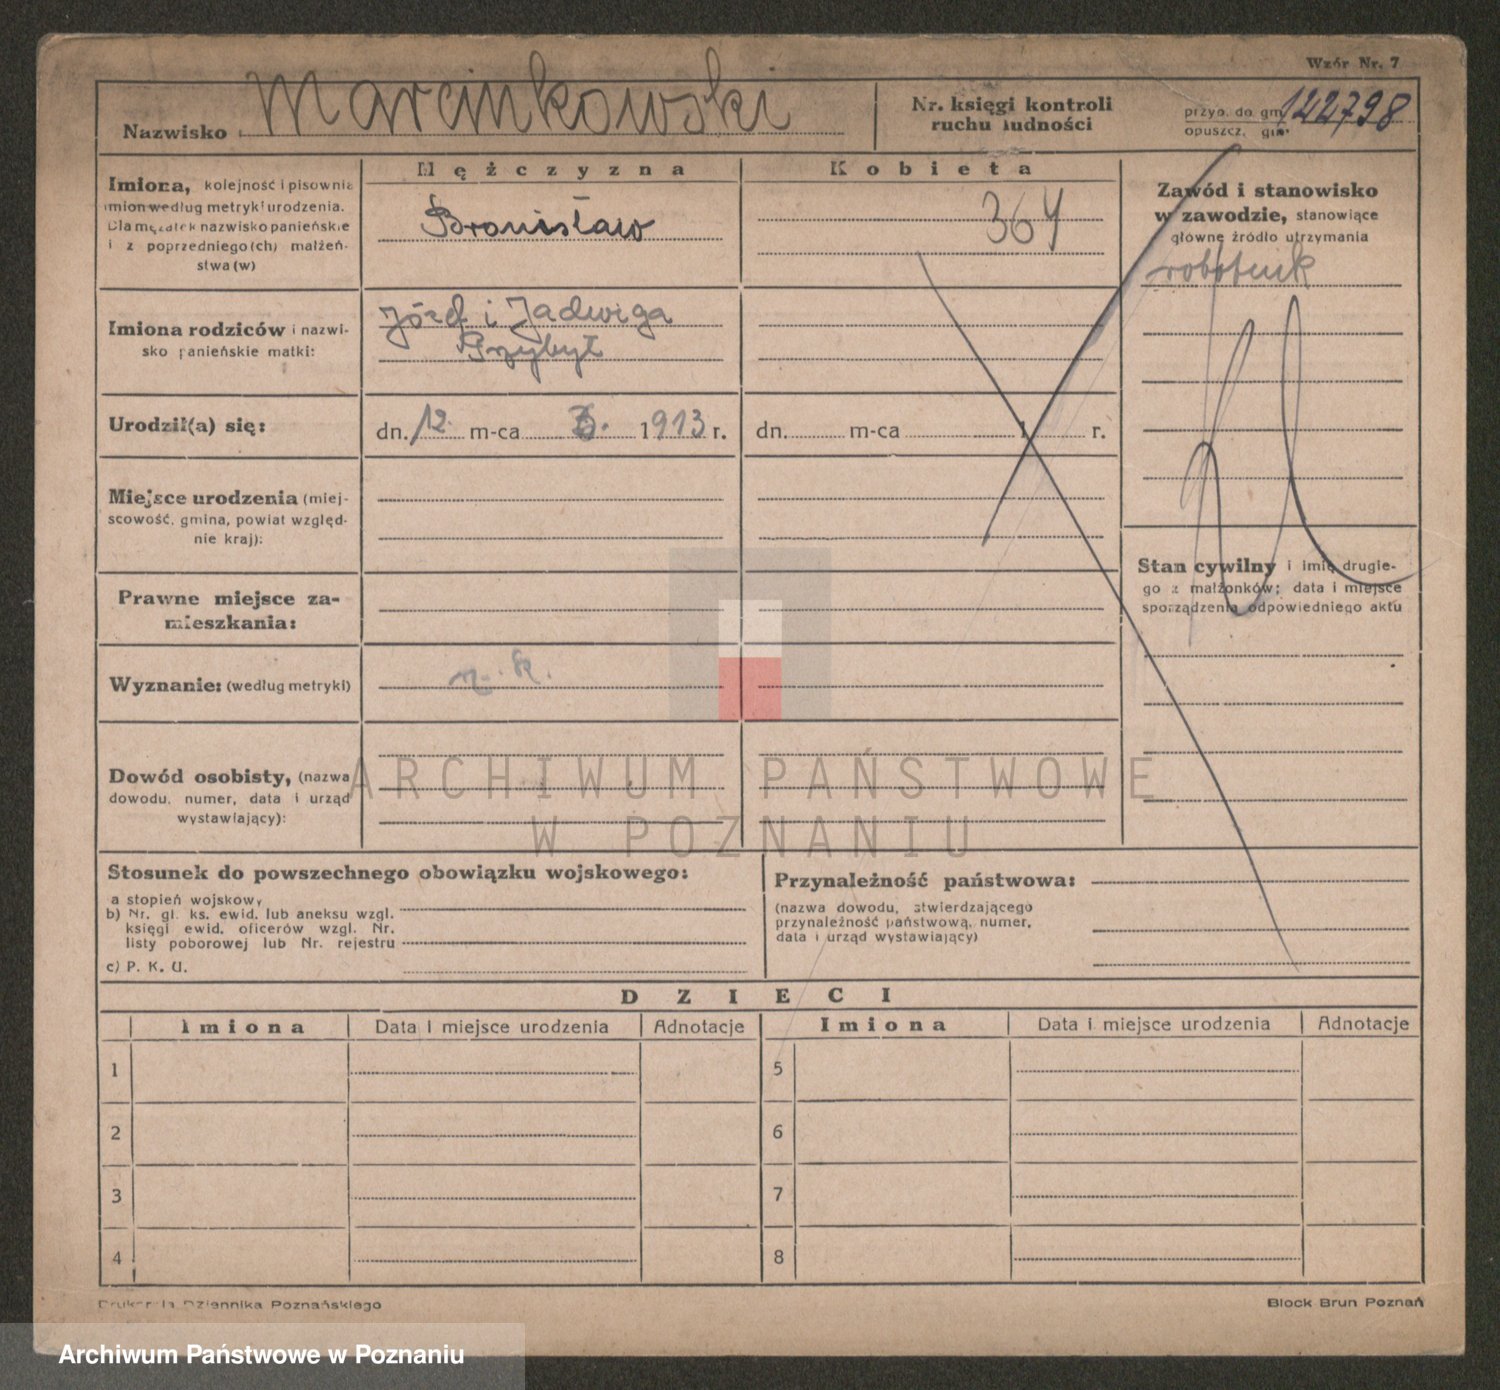 Wzór Nr. 7
Nazwisko Marcinkowski
Nr. księgi kontroli
ruchu ludności
przyb. do gm. 122798
opuszcz. gm.
Mężczyzna
Kobieta
Imiona, kolejność i pisownia
imion według metryki urodzenia.
Dla mężatek nazwisko panieńskie
i z poprzedniego(ch) małżeń-
stwa(w)
Bronisław
364
Zawód i stanowisko
w zawodzie, stanowiące
główne źródło utrzymania
robotnik
Imiona rodziców i nazwi-
sko panieńskie matki:
Józef i Jadwiga
Przybył
Urodził(a) się:
dn. 12. m-ca 1913 r.
dn. m-ca 1 r.
Miejsce urodzenia (miej-
scowość, gmina, powiat względ-
nie kraj):
Stan cywilny i imię drugie-
go z małżonków; data i miejsce
sporządzenia odpowiedniego aktu
Prawne miejsce za-
mieszkania:
Wyznanie: (według metryki)
r. k.
Dowód osobisty, (nazwa
dowodu, numer, data i urząd
wystawiający):
ARCHIWUM PAŃSTWOWE
W POZNANIU
Stosunek do powszechnego obowiązku wojskowego:
a stopień wojskowy
b) Nr. gl. ks. ewid. lub aneksu wzgl.
księgi ewid. oficerów wzgl. Nr.
listy poborowej lub Nr. rejestru
c) P. K. U.
Przynależność państwowa:
(nazwa dowodu, stwierdzającego
przynależność państwową, numer,
data i urząd wystawiający)
DZIECI
Imiona Data i miejsce urodzenia Adnotacje Imiona Data i miejsce urodzenia Adnotacje
1 5
2 6
3 7
4 8
Drukarnia Dziennika Poznańskiego
Block Brun Poznań
Archiwum Państwowe w Poznaniu